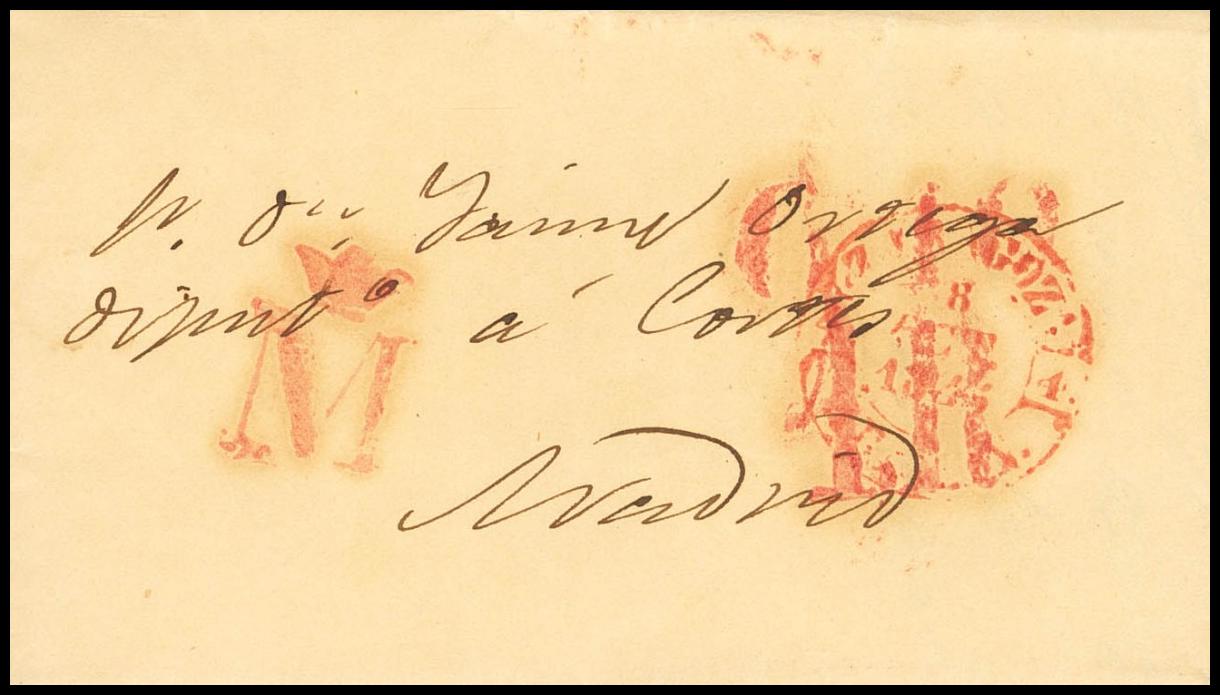 Sr. Dn. Jaime Ortega
diputo. à Cortes
Madrid
M
8